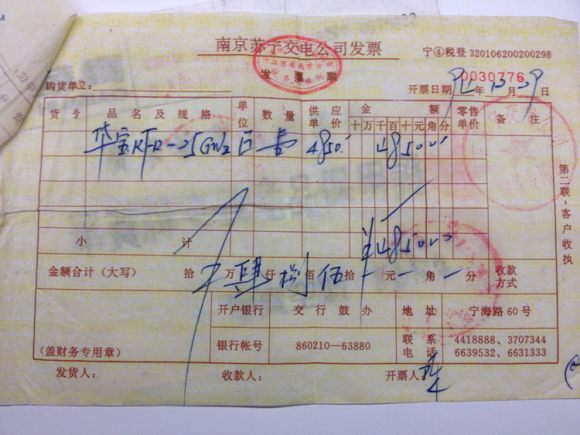 南京苏宁交电公司发票
宁④税登 320106200200298
发票联
0030776
购货单位：
开票日期 年 12月29日
货号 品名及规格 单位 数量 供应单价 金额 十万千百十元角分 零售单价 备注
华宝KFR-25GW 4850. 4850
小计 4850
金额合计（大写） 拾 万肆仟捌佰伍拾 元 角 分 收款方式
开户银行 交行鼓办 地址 宁海路60号
银行帐号 860210—63880 联系电话 4418888、3707344
6639532、6631333
（盖财务专用章）
发货人： 收款人： 开票人：
第二联：客户收执